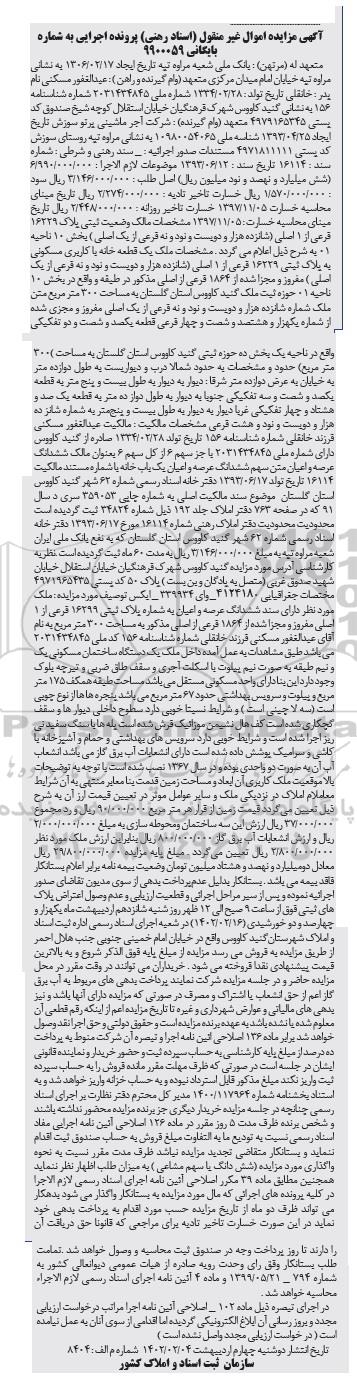 آگهی مزایده اموال غیر منقول (اسناد رهنی) پرونده اجرایی به شماره
بایگانی 9900059
متعهد له (مرتهن): بانک ملی شعبه مراوه تپه تاریخ ایجاد 1306/02/17 به نشانی
مراوه تپه خیابان امام میدان مرکزی متعهد (وام گیرنده و راهن): عبدالغفور مسکنی نام
پدر: خانقلی تاریخ تولد: 1334/02/28 شماره ملی 2031434845 شماره شناسنامه
156 به نشانی گنبد کاووس شهرک فرهنگیان خیابان استقلال کوچه شیخ صندوق کد
پستی 4979165345 متعهد (وام گیرنده): شرکت آجر ماشینی پرتو سوزش تاریخ
ایجاد 1393/04/25 شناسه ملی 10980054065 به نشانی مراوه تپه روستای سوزش
کد پستی 4971811111 مستندات صدور اجرائیه: _ سند رهنی و شرطی: شماره
سند: 16114 تاریخ سند: 1393/06/12 موضوعات لازم الاجرا: 6/990/000/000
(شش میلیارد و نهصد و نود میلیون ریال) اصل طلب: 3/146/000/000 ریال سود
: 1/570/000/000 ریال خسارت تاخیر تادیه: 2/274/000/000 ریال تاریخ مبنای
محاسبه خسارت 1397/11/05 خسارت تاخیر روزانه: 2/448/000 ریال تاریخ
مبنای محاسبه خسارت: 1397/11/05 مشخصات مالک وضعیت ثبتی پلاک 16229
فرعی از 1 اصلی (شانزده هزار و دویست و نود و نه فرعی از یک اصلی) بخش 10 ناحیه
01 به شرح ذیل اعلام می گردد. مشخصات ملک یک قطعه خانه با کاربری مسکونی
به پلاک ثبتی 16229 فرعی از 1 اصلی (شانزده هزار و دویست و نود و نه فرعی از یک
اصلی) مفروز و مجزا شده از 1864 فرعی از اصلی مذکور در طیفه و واقع در بخش 10
ناحیه 01 حوزه ثبت ملک گنبد کاووس استان گلستان به مساحت 300 متر مربع متن
ملک شماره شانزده هزار و دویست و نود و نه فرعی از یک اصلی مفروز و مجزی شده
از شماره یکهزار و هشتصد و شصت و چهار فرعی قطعه یکصد و شصت و دو تفکیکی
واقع در ناحیه یک بخش ده حوزه ثبتی گنبد کاووس استان گلستان به مساحت (300
متر مربع) حدود و مشخصات به حدود شمالا درب و دیواریست به طول دوازده متر
به خیابان به عرض دوازده متر شرقا: دیوار به دیوار به طول بیست و پنج متر به قطعه
یکصد و شصت و سه تفکیکی جنوبا به دیوار به طول دوازده متر به قطعه یک صد و
هشتاد و چهار تفکیکی غربا دیوار به دیوار به طول بیست و پنج متر به شماره شانزده
هزار و دویست و نود و هشت فرعی مشخصات مالکیت: مالکیت عبدالغفور مسکنی
فرزند خانقلی شماره شناسنامه 156 تاریخ تولد 1334/02/28 صادره از گنبد کاووس
دارای شماره ملی 2031434845 با جز سهم 6 از کل سهم 6 بعنوان مالک ششدانگ
عرصه و اعیان متن سهم ششدانگ عرصه و اعیان یک باب خانه با شماره مستند مالکیت
16114 تاریخ 1393/06/17 دفترخانه اسناد رسمی شماره 62 شهر گنبد کاووس
استان گلستان موضوع سند مالکیت اصلی به شماره چاپی 359053 سری د سال
91 که در صفحه 763 دفتر املاک جلد 192 ذیل شماره 34824 ثبت گردیده است
محدودیت محدودیت دفتر املاک رهنی شماره 16114 مورخ 1393/06/17 دفترخانه
اسناد رسمی شماره 62 شهر گنبد کاووس استان گلستان که به نفع بانک ملی ایران
شعبه مراوه تپه به مبلغ 3/146/000/000 ریال به مدت 60 ماه ثبت گردیده است نظریه
کارشناسی آدرس مورد مزایده گنبد کاووس شهرک فرهنگیان خیابان استقلال خیابان
شهید صدوق غربی (متصل به پادگان و بن بست) پلاک 50 کد پستی 4971965435
مختصات جغرافیایی 412418_وای 339934 _ایکس توصیف مورد مزایده: ملک
مورد نظر دارای سند ششدانگ عرصه و اعیان به شماره پلاک ثبتی 16299 فرعی از 1
اصلی مفروز و مجزا شده از 1864 فرعی از اصلی مذکور به مساحت 300 متر مربع به نام
آقای عبدالغفور مسکنی فرزند خانقلی شماره شناسنامه 156 کد ملی 2031434845
می باشد طبق مشاهدات به عمل آمده داخل ملک یک دستگاه ساختمان مسکونی یک
و نیم طبقه به صورت نیم پیلوت با اسکلت آجری و سقف طاق ضربی و تیرچه بلوک
وجود دارد این بنا دارای واحد مسکونی مستقل می باشد مساحت طبقه همکف 175 متر
مربع و پیلوت و سرویس بهداشتی حدود 67 متر مربع می باشد پنجره ها از نوع چوبی
است (سه لا چینی است) و شرایط نسبتا خوبی دارد سطوح داخلی دیوار ها و سقف
گچکاری شده است کف هال نشیمن موزائیک فرش شده است پله ها با سنگ سفید نی
ریز اجرا شده است و شرایط خوبی دارد سرویس های بهداشتی و حمام و آشپزخانه با
کاشی و سرامیک پوشش داده شده است دارای انشعابات آب برق گاز می باشد انشعاب
آب آن به صورت دو واحدی بوده و در سال 1367 نصب شده است با توجه به توضیحات
بالا موقعیت ملک کاربری آن ابعاد و مساحت زمین قدمت بنا معابر منتهی به آن شرایط
معاملام املاک در نزدیکی ملک و سایر عوامل موثر در تعیین قیمت ارز آن به شرح
ذیل تعیین می گردد قیمت زمین از قرار هر متر مربع 90/000/000 ریال و در مجموع
27/000/000/000 ریال ارزش این سه ساختمان و محوطه سازی به مبلغ 2/000/000/000
ریال و ارزش انشعابات آب برق گاز 800/000/000 ریال بنابراین ارزش ملک مورد نظر
29/800/000/000 ریال تعیین می گردد. مبلغ پایه مزایده 29/800/000/000 ریال
معادل دو میلیارد و نهصد و هشتاد میلیون تومان وضعیت بیمه نامه برابر اعلام بستانکار
فاقد بیمه می باشد. بستانکار بدلیل عدم پرداخت بدهی از سوی مدیون تقاضای صدور
اجرائیه نموده و پس از سیر مراحل اجرائی و قطعیت ارزیابی و عدم وصول اعتراض پلاک
های ثبتی فوق از ساعت 9 صبح الی 12 ظهر روز شنبه شانزدهم اردیبهشت ماه یکهزار و
چهارصد و دو خورشیدی (1402/02/16) در شعبه اجرای اسناد رسمی اداره ثبت اسناد
و املاک شهرستان گنبد کاووس واقع در خیابان امام خمینی جنوبی جنب هلال احمر
از طریق مزایده به فروش می رسد مزایده از مبلغ پایه فوق الذکر شروع و به بالاترین
قیمت پیشنهادی نقدا فروخته می شود. خریداران می توانند در وقت مقرر در محل
مزایده حاضر و در جلسه مزایده شرکت نمایند پرداخت بدهی های مربوط به آب برق
گاز اعم از حق انشعاب یا اشتراک و مصرف در صورتی که مزایده دارای آنها باشد و نیز
بدهی های مالیاتی و عوارض شهرداری و غیره تا تاریخ مزایده اعم از اینکه رقم قطعی آن
معلوم شده یا نشده باشد به عهده برنده مزایده است و حقوق دولتی و حق اجرا نقد وصول
خواهد شد برابر ماده 136 اصلاحی آئین نامه اجرا و تبصره آن شرکت منوط به پرداخت
ده درصد از مبلغ پایه کارشناسی به حساب سپرده ثبت و حضور خریدار و نماینده قانونی
ایشان در جلسه است در صورتی که ظرف مهلت مقرر مانده فروش را به حساب سپرده
ثبت واریز نکند مبلغ مذکور قابل استرداد نبوده و به حساب خزانه واریز خواهد شد و به
استناد بخشنامه شماره 1400/117964 مدیر کل محترم دفتر نظارت بر اجرای اسناد
رسمی چنانچه در جلسه مزایده خریدار دیگری جز برنده مزایده محضور نداشته باشند
و شخص برنده ظرف مدت 5 روز مقرر در ماده 126 اصلاحی آئین نامه اجرایی مفاد
اسناد رسمی نسبت به تودیع ما به التفاوت مبلغ فروش به حساب صندوق ثبت اقدام
ننماید و بستانکار متقاضی تجدید مزایده نباشد ظرف مدت مقرر نسبت به نحوه
واگذاری مورد مزایده (شش دانگ یا سهم مشاعی) به میزان طلب اظهار نظر ننماید
همچنین مطابق ماده 39 مکرر اصلاحی آئین نامه اجرای اسناد رسمی لازم الاجرا
در کلیه پرونده های اجرائی که مال مورد مزایده به بستانکار واگذار می شود بدهکار
می تواند ظرف دو ماه از تاریخ مزایده حسب مورد اقدام به پرداخت بدهی خود
نماید در این صورت خسارت تاخیر تادیه برای مراجعی که قانونا حق دریافت آن
را دارند تا روز پرداخت وجه در صندوق ثبت محاسبه و وصول خواهد شد. تمامت
طلب بستانکار وفق رای وحدت رویه صادره از هیات عمومی دیوانعالی کشور به
شماره 794 _ 1399/05/21 و ماده 4 آئین نامه اجرای اسناد رسمی لازم الاجراء
محاسبه خواهد شد.
در اجرای تبصره ذیل ماده 102 _ اصلاحی آئین نامه اجرا مراتب درخواست ارزیابی
مجدد و بروز رسانی آن ابلاغ الکترونیکی گردیده اما اقدامی از سوی آنان به عمل نیامده
است (درخواست ارزیابی مجدد واصل نشده است)
تاریخ انتشار دوشنبه چهارم اردیبهشت 1402/02/04 شماره م الف: 8404
سازمان ثبت اسناد و املاک کشور